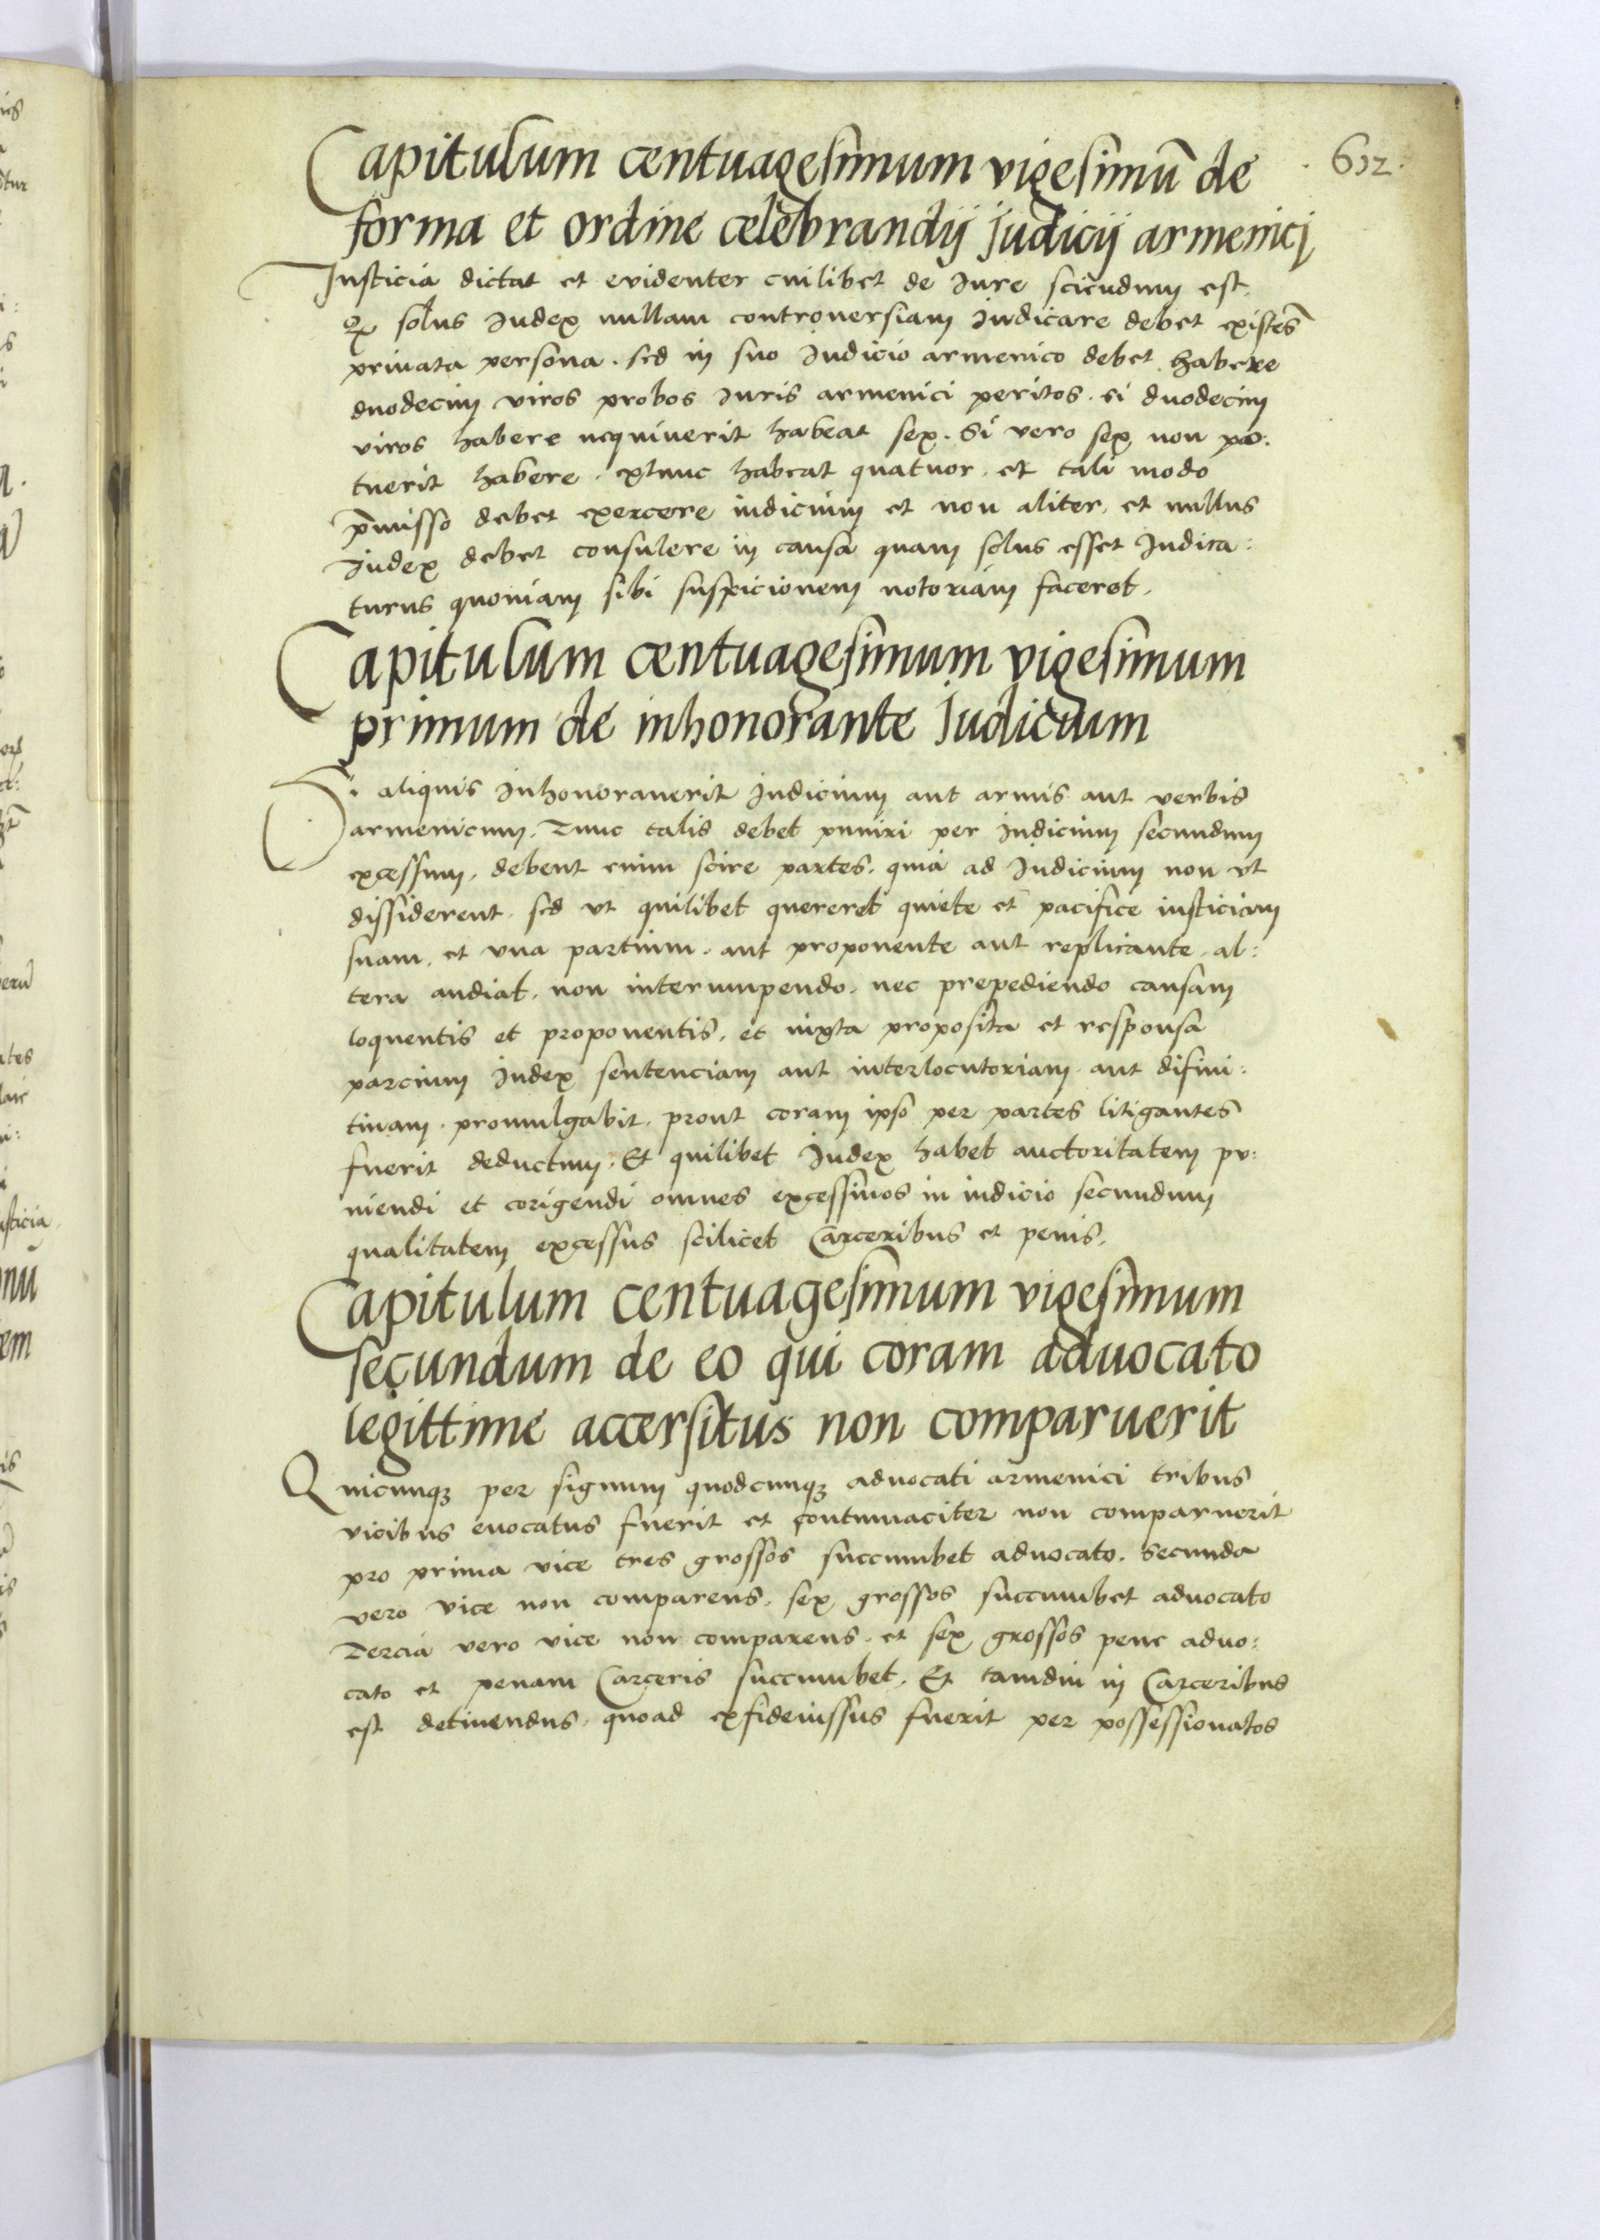 612.
Capitulum centuagesimum vigesimū de
forma et ordine celebrandij Judicij armenicj
Iusticia dictat et evidenter cuilibet de Jure sciendum est.
ꝙ solus Judex nullam controuersiam Judicare debet existēs
priuata persona. sed in suo Judicio armenico debet habere
duodecim viros probos Juris armenici peritos. si duodecim
viros habere nequiuerit habeat sex. Si vero sex non po:
tuerit habere. extunc habeat quatuor. et tali modo
p̄misso debet exercere iudicium et non aliter. et nullus
Judex debet consulere in causa quam solus esset Judica:
turus quoniam sibi suspicionem notoriam faceret.
Capitulum centuagesimum vigesimum
primum de inhonorante Judicium
Si aliquis Inhonorauerit Judicium aut armis aut verbis
armenicum. Tunc talis debet puniri per Judicium secundum
excessum. debent enim scire partes. quia ad Judicium non vt
dissiderent. sed vt quilibet quereret quiete et pacifice iusticiam
suam. et vna partium. aut proponente aut replicante. al:
tera audiat. non interumpendo. nec prepediendo causam
loquentis et proponentis. et iuxta proposita et responsa
parcium Judex sentenciam aut interlocutoriam. aut difini:
tiuam. promulgabit. prout coram ipso per partes litigantes
fuerit deductum. Et quilibet Judex habet auctoritatem pu:
niendi et corigendi omnes excessiuos in iudicio secundum
qualitatem excessus scilicet Carceribus et penis.
Capitulum centuagesimum vigesimum
secundum de eo qui coram aduocato
legittime accersitus non comparuerit
Quicunqꝫ per signum quodcunqꝫ aduocati armenici tribus
vicibus euocatus fuerit et contumaciter non comparuerit
pro prima vice tres grossos succumbet aduocato. secunda
vero vice non comparens. sex grossos succumbet aduocato
Tercia vero vice non comparens. et sex grossos pene aduo:
cato et penam Carceris succumbet. Et tamdiu in Carceribus
est detinendus. quoad exfideiussus fuerit per possessionatos